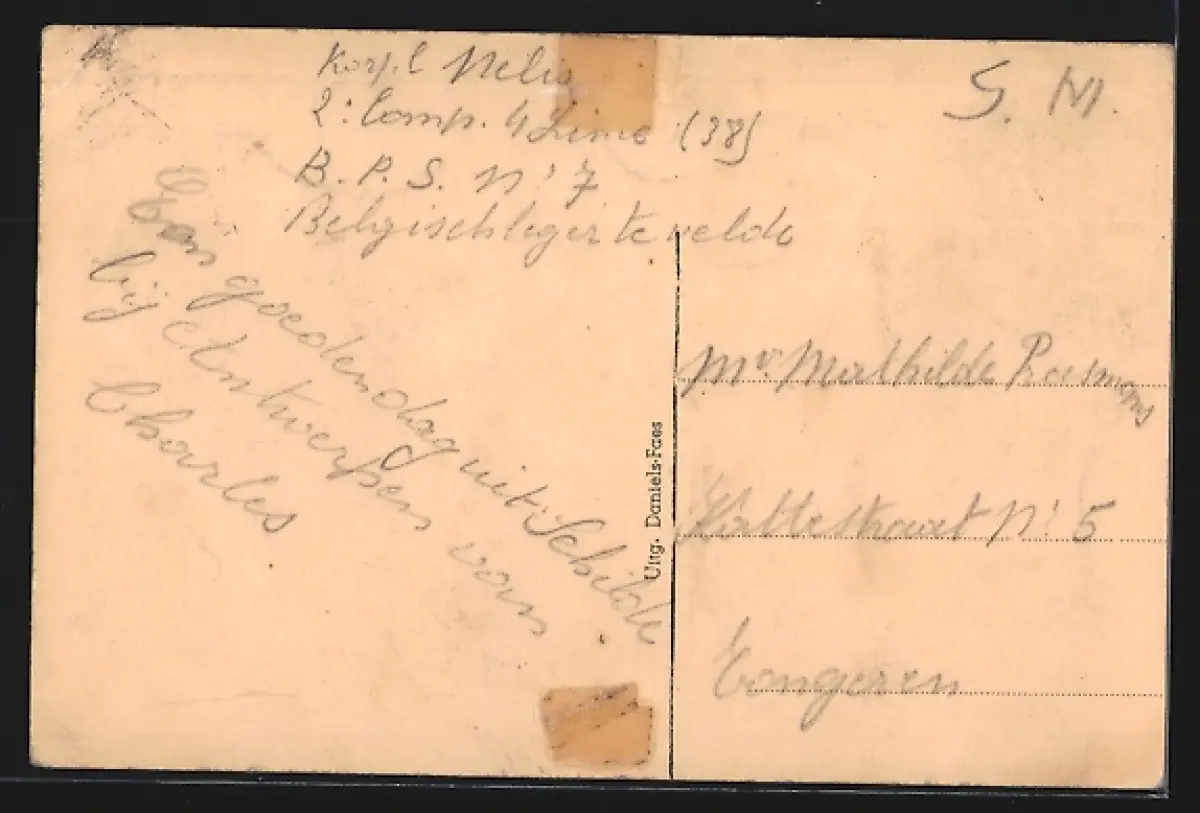 Korp.l Nelis
2: Comp. 4 Linie (38)
B. P. S. N: 7
Belgischleger te velde
S. M.
Een goedendag uit Schilde
bij Antwerpen van
Charles
Uitg. Daniels-Faes
Mv. Mathilde
N: 5
Tongeren